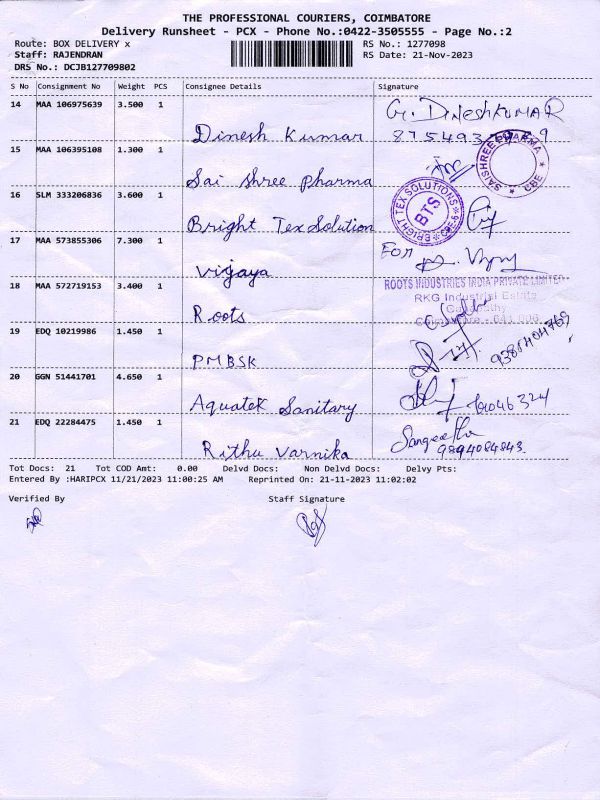 THE PROFESSIONAL COURIERS, COIMBATORE
Delivery Runsheet - PCX - Phone No.:0422-3505555 - Page No.:2
Route: BOX DELIVERY x
RS No.: 1277098
Staff: RAJENDRAN
RS Date: 21-Nov-2023
DRS No.: DCJB127709802
S No Consignment No Weight PCS Consignee Details Signature
14 MAA 106975639 3.500 1
G. DINESHKUMAR
Dinesh Kumar
15 MAA 106395108 1.300 1
SAISHREE PHARMA
CBE
Sai Shree Pharma
16 SLM 333206836 3.600 1
BRIGHT TEX SOLUTIONS
BTS
Bright Tex Solution
17 MAA 573855306 7.300 1
FOR
Vijaya
18 MAA 572719153 3.400 1
ROOTS INDUSTRIES INDIA PRIVATE LIMITED
RKG Industrial Estate
Roots
19 EDQ 10219986 1.450 1
9384404769
PMBSK
20 GGN 51441701 4.650 1
Aquatek Sanitary
21 EDQ 22284475 1.450 1
Sangeetha
9894084843.
Rithu Varnika
Tot Docs: 21 Tot COD Amt: 0.00 Delvd Docs: Non Delvd Docs: Delvy Pts:
Entered By :HARIPCX 11/21/2023 11:00:25 AM Reprinted On: 21-11-2023 11:02:02
Verified By Staff Signature